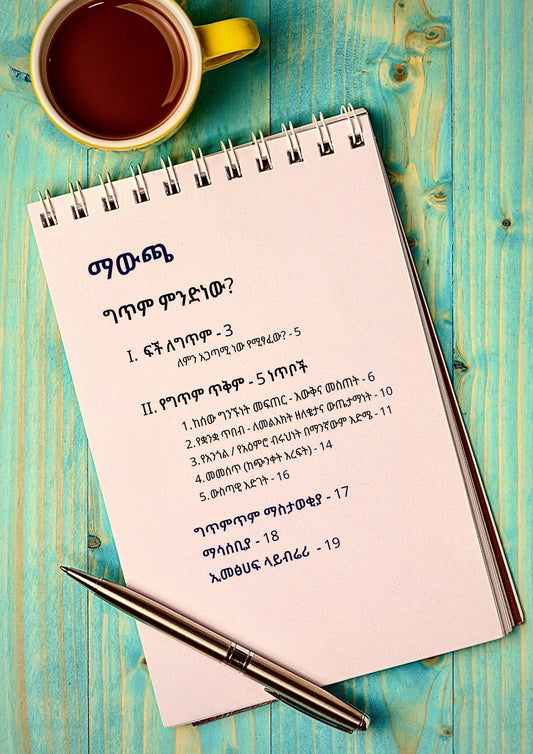 ማውጫ
ግጥም ምንድነው?
I. ፍች ለግጥም - 3
ለምን አጋጣሚ ነው የሚፃፈው? - 5
II. የግጥም ጥቅም - 5 ነጥቦች
1. ከሰው ግንኙነት መፍጠር - እውቅና መስጠት - 6
2. የቋንቋ ጥበብ - ለመልእክት ዘለቄታና ውጤታማነት - 10
3. የአንጎል / የአዕምሮ ብሩህነት በማንኛውም እድሜ - 11
4. መመሰጥ (ከጭንቀት እረፍት) - 14
5. ውስጣዊ እድገት - 16
ግጥምጥም ማስታወቂያ - 17
ማሳሰቢያ - 18
ኢ.መፅሀፍ ላይብሬሪ - 19